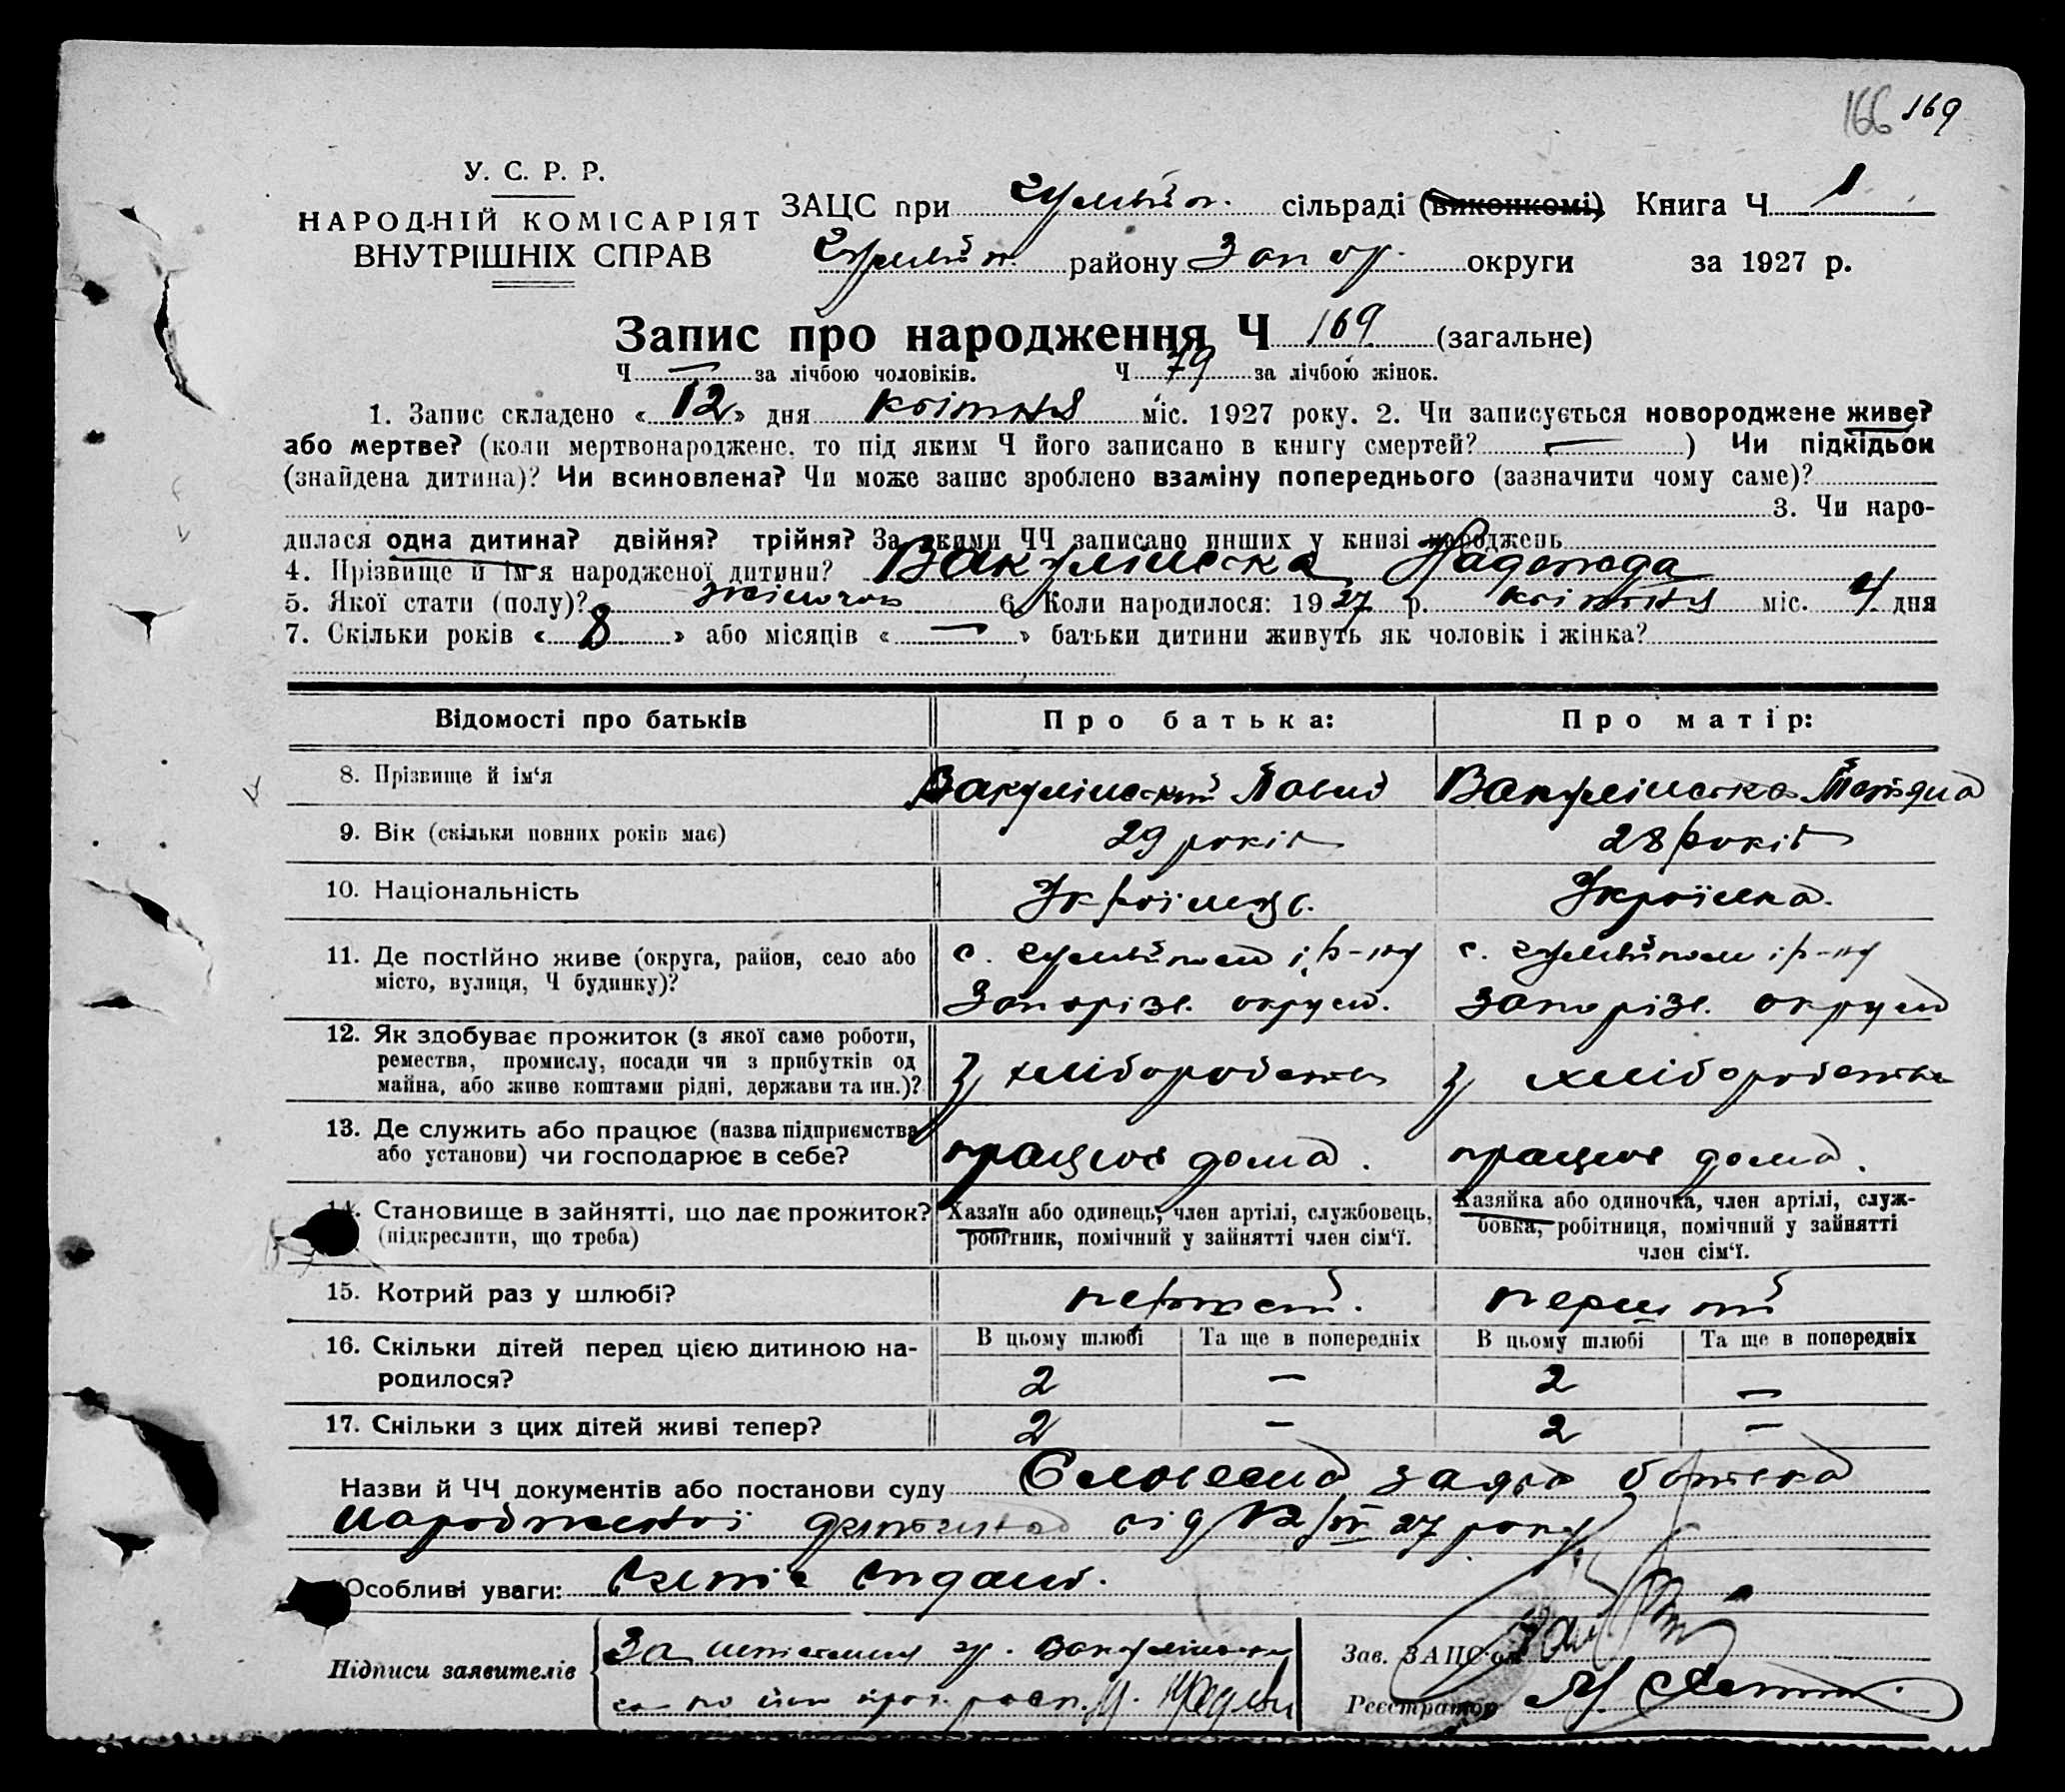 166 169
У. С. Р. Р.
НАРОДНІЙ КОМІСАРІЯТ
ВНУТРІШНІХ СПРАВ
ЗАЦС при Гуляйп. сільраді (виконкомі) Книга Ч 1
Гуляйп. району Запор. округи за 1927 р.
Запис про народження Ч 169 (загальне)
Ч — за лічбою чоловіків. Ч 79 за лічбою жінок.
1. Запис складено « 12 » дня квітня міс. 1927 року. 2. Чи записується новороджене живе?
або мертве? (коли мертвонароджене, то під яким Ч його записано в книгу смертей? — ) Чи підкідьок
(знайдена дитина)? Чи всиновлена? Чи може запис зроблено взаміну попереднього (зазначити чому саме)?
3. Чи наро-
дилася одна дитина? двійня? трійня? За якими ЧЧ записано инших у книзі народжень
4. Прізвище й ім'я народженої дитини? Вакулінська Надежда
5. Якої стати (полу)? жіночоі 6. Коли народилося: 1927 р. квітня міс. 4 дня
7. Скільки років « 8 » або місяців « — » батьки дитини живуть як чоловік і жінка?
Відомості про батьків Про батька: Про матір:
8. Прізвище й ім'я Вакулінський Павло Вакулінська Тетяна
9. Вік (скільки повних років має) 29 років 28 років
10. Національність Українець. Українка.
11. Де постійно живе (округа, район, село або с. Гуляйполе і р-ну с. Гуляйполе і р-ну
місто, вулиця, Ч будинку)? Запорізь. округи. Запорізь. округи
12. Як здобуває прожиток (з якої саме роботи,
ремества, промислу, посади чи з прибутків од
майна, або живе коштами рідні, держави та ин.)? З хліборобства З хліборобства
13. Де служить або працює (назва підприємства
або установи) чи господарює в себе? працює дома. працює дома.
14. Становище в зайнятті, що дає прожиток? Хазяїн або одинець, член артілі, службовець, Хазяйка або одиночка, член артілі, служ-
(підкреслити, що треба) робітник, помічний у зайнятті член сім'ї. бовка, робітниця, помічний у зайнятті
член сім'ї.
15. Котрий раз у шлюбі? перший. перший
16. Скільки дітей перед цією дитиною на- В цьому шлюбі Та ще в попередніх В цьому шлюбі Та ще в попередніх
родилося? 2 — 2 —
17. Скільки з цих дітей живі тепер? 2 — 2 —
Назви й ЧЧ документів або постанови суду Словесна заява батька
народженої від 12/IV 27 року
Особливі уваги:
Підписи заявителів За гр. Вакулінськ
Зав. ЗАЦС'ом
Реєстратор